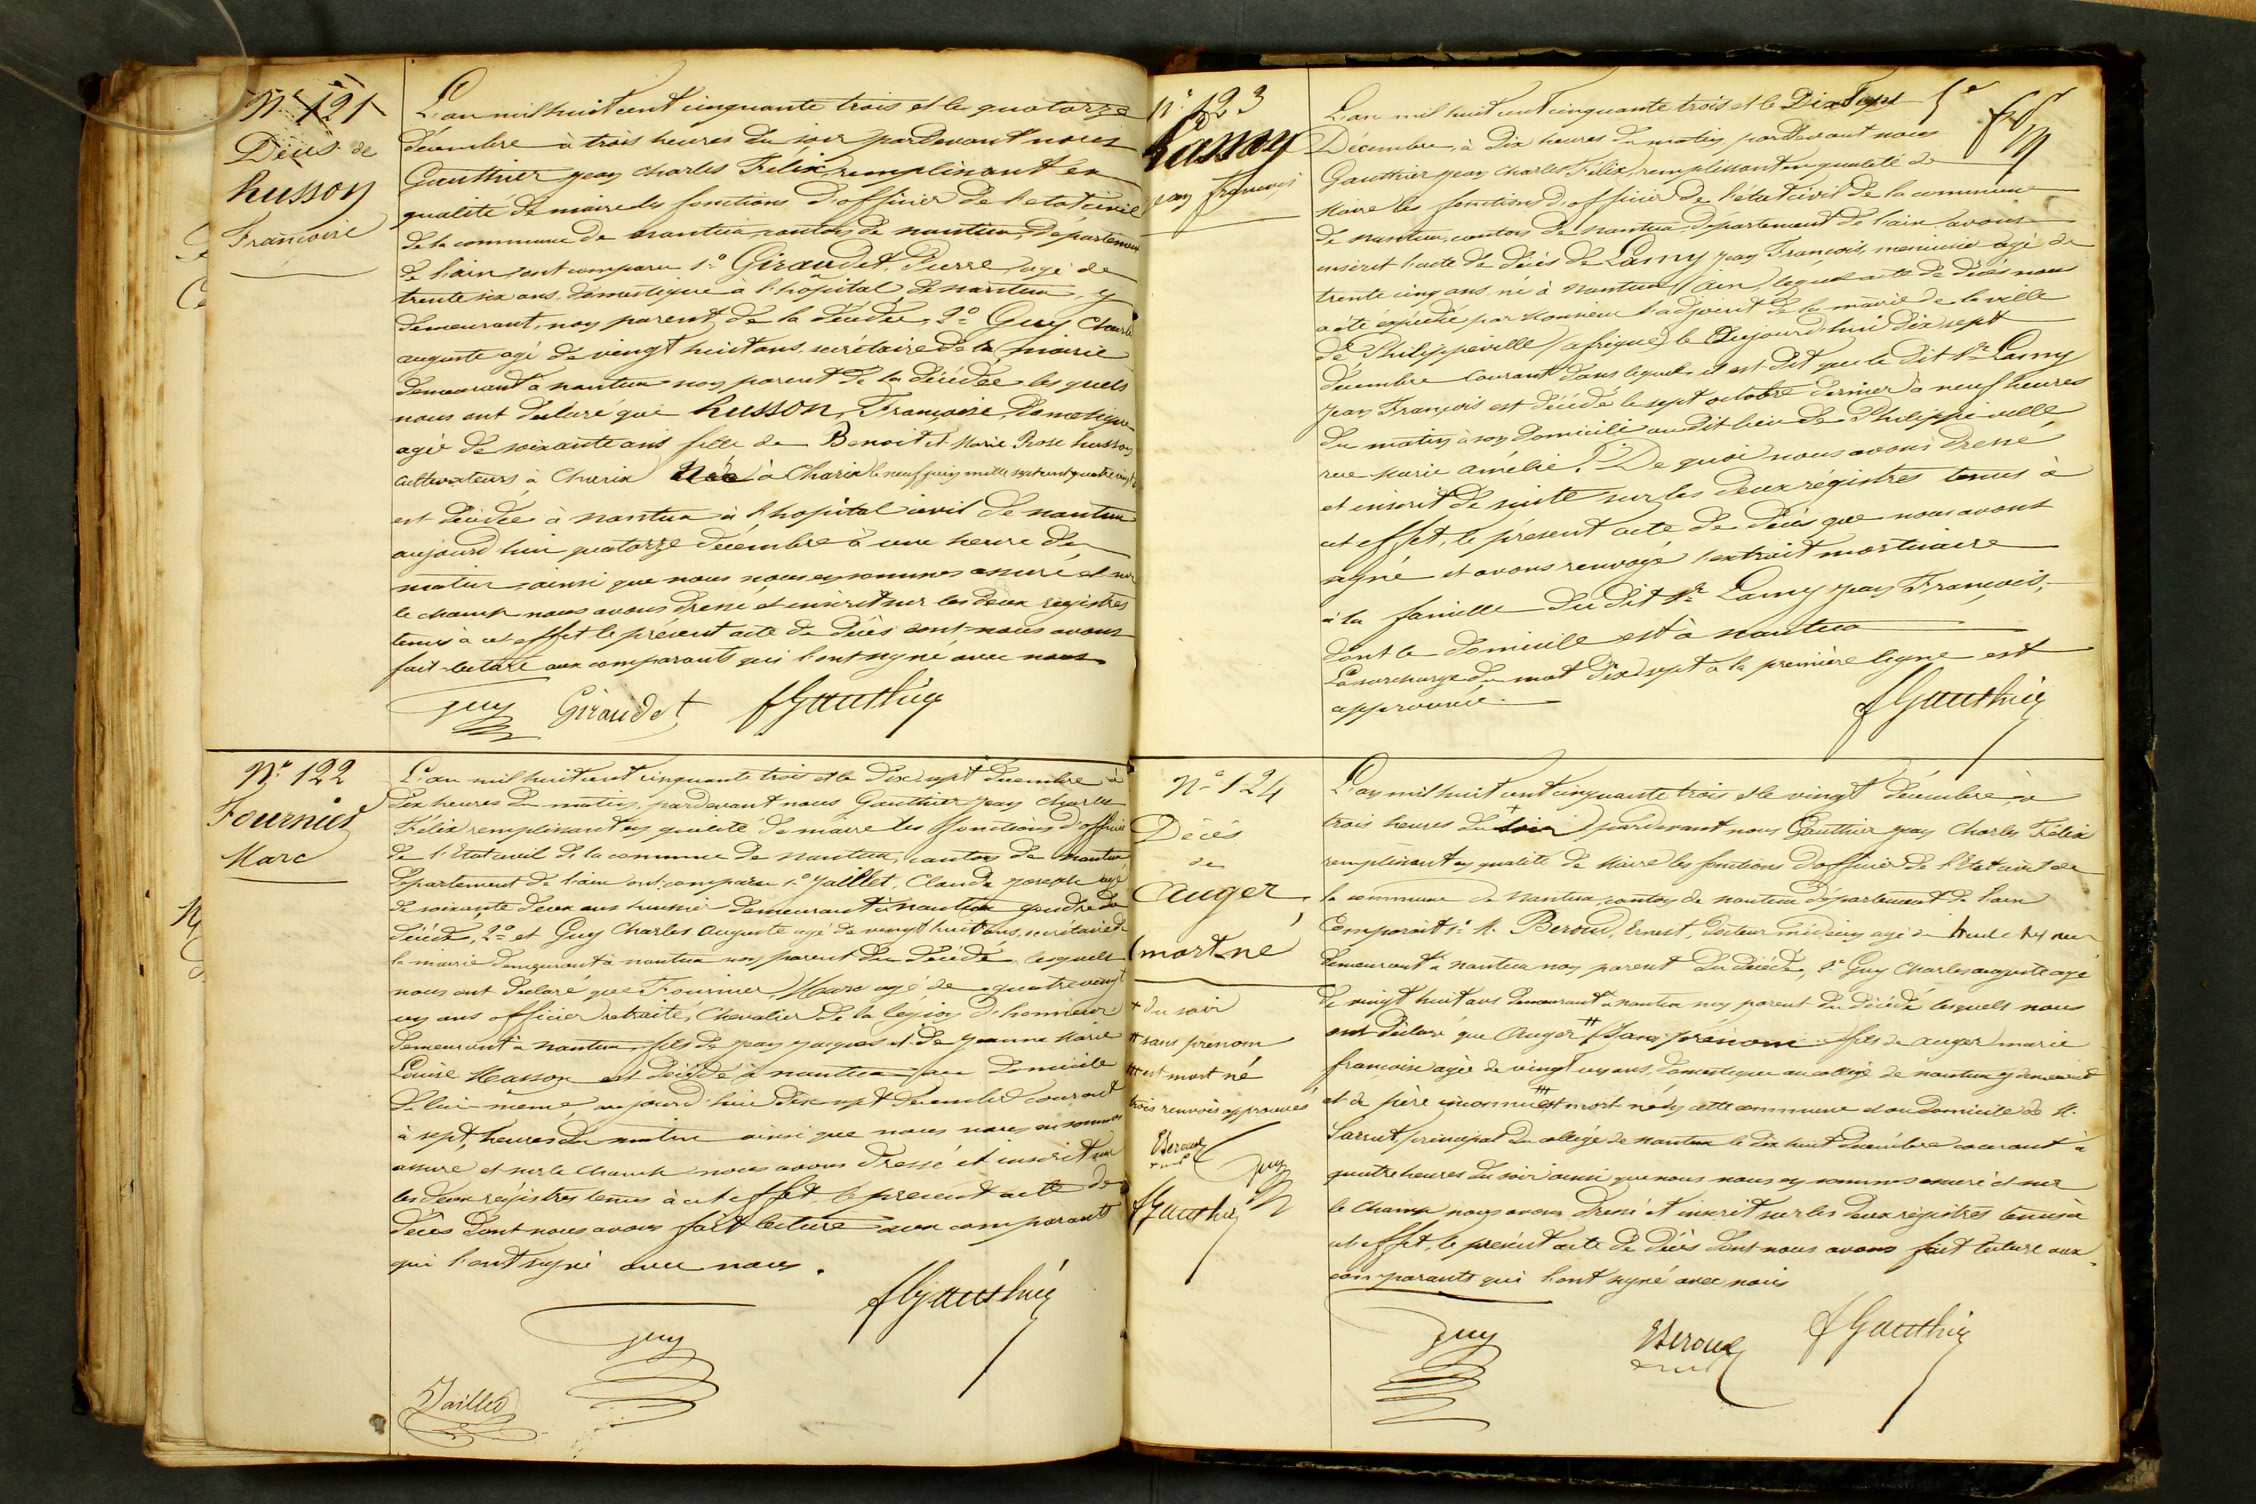 N° 121
Décès de
husson
Françoise
L'an mil huit cent cinquante trois et le quatorze
décembre à trois heures du soir pardevant nous
Gauthier jean charles Félix, remplissant en
qualité de maire les fonctions d'officier de l'etat civil
de la commune de nantua canton de nantua, département
de l'ain sont comparu 1° Giraudet, Pierre, agé de
trente six ans, domestique à l'hôpital de nantua, y
demeurant, non parent de la décédée, 2° Guy Charles
auguste agé de vingt huit ans, secrétaire de la mairie
demeurant à nantua non parent de la décédée lesquels
nous ont déclaré que husson, Françoise, domestique
agée de soixante ans fille de Benoit et Marie Rose husson
cultivateurs à Charix Née à Charix le neuf juin mille sept cent quatre vingt
est décédée à nantua à l'hopital civil de nantua
aujourd'hui quatorze décembre à une heure du
matin, ainsi que nous nous en sommes assuré et sur
le champ nous avons dressé et inscrit sur les deux registres
tenus à cet effet le présent acte de décès dont nous avons
fait lecture aux comparants qui l'ont signé avec nous
guy Giraudet fGauthier
N° 122
Fournier
Marc
L'an mil huit cent cinquante trois et le dix sept décembre à
dix heures du matin, pardevant nous Gauthier jean charles
Félix remplissant en qualité de maire les fonctions d'officier
de l'Etat civil de la commune de nantua, canton de nantua
département de l'ain ont comparu 1° Jaillet, Claude joseph agé
de soixante deux ans huissier demeurant à nantua gendre du
décédé, 2° et Guy Charles Auguste agé de vingt huit ans, secrétaire de
la mairie demeurant à nantua non parent du décédé, lesquels
nous ont déclaré que Fournier, Marc agé de quatre vingt
un ans officier retraité, Chevalier de la légion d'honneur
demeurant à nantua fils de jean jacques et de jeanne Marie
Louise Masson est décédé à nantua au domicile
de lui-même, aujourd'hui dix sept décembre courant
à sept heures du matin ainsi que nous nous en sommes
assuré et sur le champ nous avons dressé et inscrit sur
les deux registres tenus à cet effet le présent acte de
décès dont nous avons fait lecture aux comparants
qui l'ont signé avec nous.
fGauthier
guy
Jaillet
N° 123
Lamy
jean françois
L'an mil huit cent cinquante trois et le Dix Sept
Décembre, à dix heures du matin pardevant nous
Gauthier jean charles Félix, remplissant en qualité de
Maire les fonctions d'officier de l'etat civil de la commune
de nantua, canton de nantua, département de l'ain avons
inscrit l'acte de décès de Lamy jean François, menuisier agé de
trente cinq ans né à nantua (ain) lequel acte de décès nous
a été expédié par Monsieur l'adjoint de la mairie de la ville
de Philippeville (afrique) le aujourd'hui dix sept
décembre courant dans lequel il est dit que le dit Sr Lamy
jean François est décédé le sept octobre dernier à neuf heures
du matin à son domicile au dit lieu de Philippeville,
rue Marie amélie. De quoi nous avons dressé
et inscrit de suite sur les deux régistres tenus à
cet effet, le présent acte de décès que nous avons
signé et avons renvoyé l'extrait mortuaire
à la famille du dit Sr Lamy jean François,
dont le domicile est à nantua
La surcharge du mot Dix sept à la première ligne est
approuvée.
fGauthier
N° 124
Décès
de
Auger,
(mort né
+ du soir
++ sans prénom
+++ est mort né
trois renvois approuvés
EBeroud guy
fGauthier
L'an mil huit cent cinquante trois et le vingt décembre, à
trois heures du soir pardevant nous Gauthier jean Charles Félix
remplissant en qualité de Maire les fonctions d'officier de l'Etat civil de
la commune de Nantua, canton de nantua département de l'ain
Comparait 1° M. Beroud, Ernest, Docteur médecin agé de
demeurant à nantua non parent du décédé, 2° Guy Charles auguste agé
de vingt huit ans demeurant à nantua non parent du décédé lesquels nous
ont déclaré que Auger ++ (Sans prénom fils de auger marie
françoise agée de vingt un ans, domestique au collège de nantua y demeurant
et de père inconnu +++ est mort né dans cette commune et au domicile de M.
Sarrut, principal du collège de nantua le dix huit décembre courant à
quatre heures du soir ainsi que nous nous en sommes assuré et sur
le champ nous avons dressé et inscrit sur les deux régistres tenus à
cet effet, le présent acte de décès dont nous avons fait lecture aux
comparants qui l'ont signé avec nous
guy EBeroud fGauthier